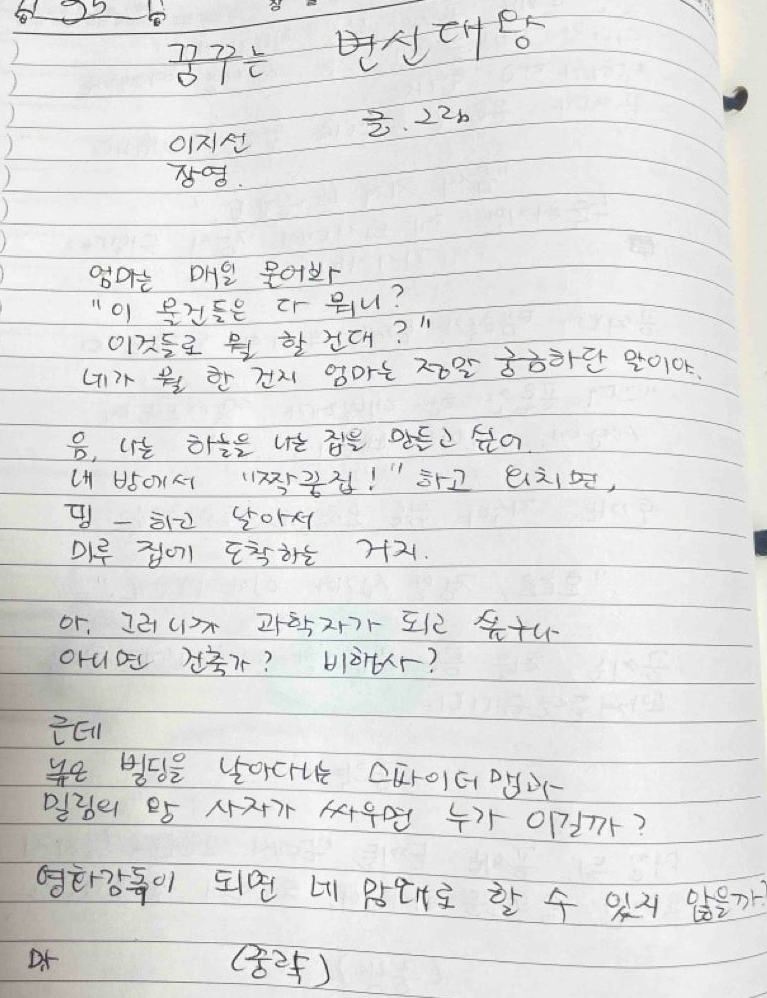 꿈꾸는 변신대왕
글.그림
이지선
장영.
엄마는 매일 물어봐
"이 물건들은 다 뭐니?
이것들로 뭘 할 건대?"
네가 뭘 한 건지 엄마는 정말 궁금하단 말이야.
음, 나는 하늘을 나는 집을 만들고 싶어.
내 방에서 "짝꿍집!" 하고 외치면,
띵 - 하고 날아서
미루 집에 도착하는 거지.
아, 그러니까 과학자가 되고 싶구나
아니면 건축가? 비행사?
근데
높은 빌딩을 날아다니는 스파이더맨과
밀림의 왕 사자가 싸우면 누가 이길까?
영화감독이 되면 네 맘대로 할 수 있지 않을까?
(중략)